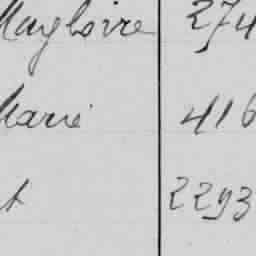 Magloire 274
Marie 416
t 2293